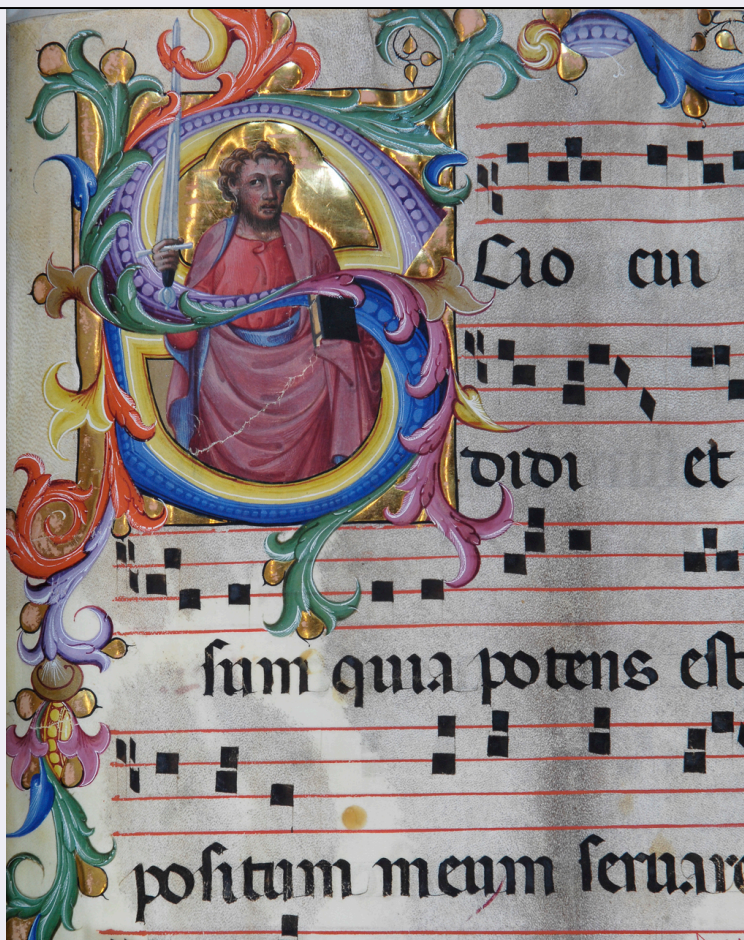 Scio cui
didi et
sum quia potens est
positum meum seruare